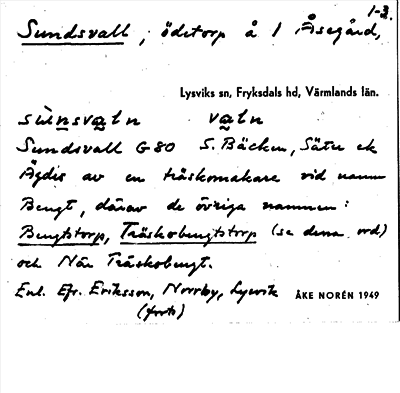 1-3.
Sundsvall, ödetorp å 1 Åsegård,
Lysviks sn, Fryksdals hd, Värmlands län.
sùnsvaḷn vaḷn
Sundsvall G 80 S. Bäcken, Sätu ek
Ägdes av en träskomakare vid namn
Bengt, därav de övriga namnen:
Bengtstorp, Träskobengtstorp (se dessa ord)
och När Träskobengt.
Enl. Efr. Eriksson, Norrby, Lysvik
ÅKE NORÉN 1949
(forts)